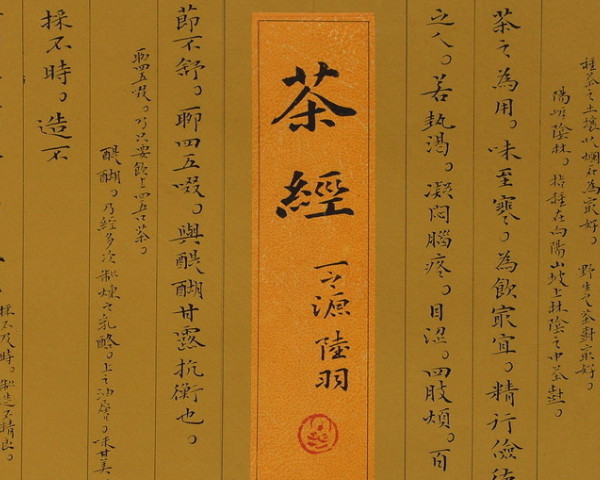 種茶之土壤以爛石為最好。 野生之茶葉最好。
陽崖陰林。指種在向陽山坡上林陰之中茶樹。
茶之為用。味至寒。為飲最宜。精行儉德
之人。若熱渴。凝悶腦疼。目澀。四肢煩。百
茶經
一之源 陸羽
節不舒。聊四五啜。與醍醐甘露抗衡也。
聊四五啜。乃只要飲上四五口茶。
醍醐。乃經多次製煉之乳酪。上之油層。味甘美
採不時。造不
採不及時。製造不精良。